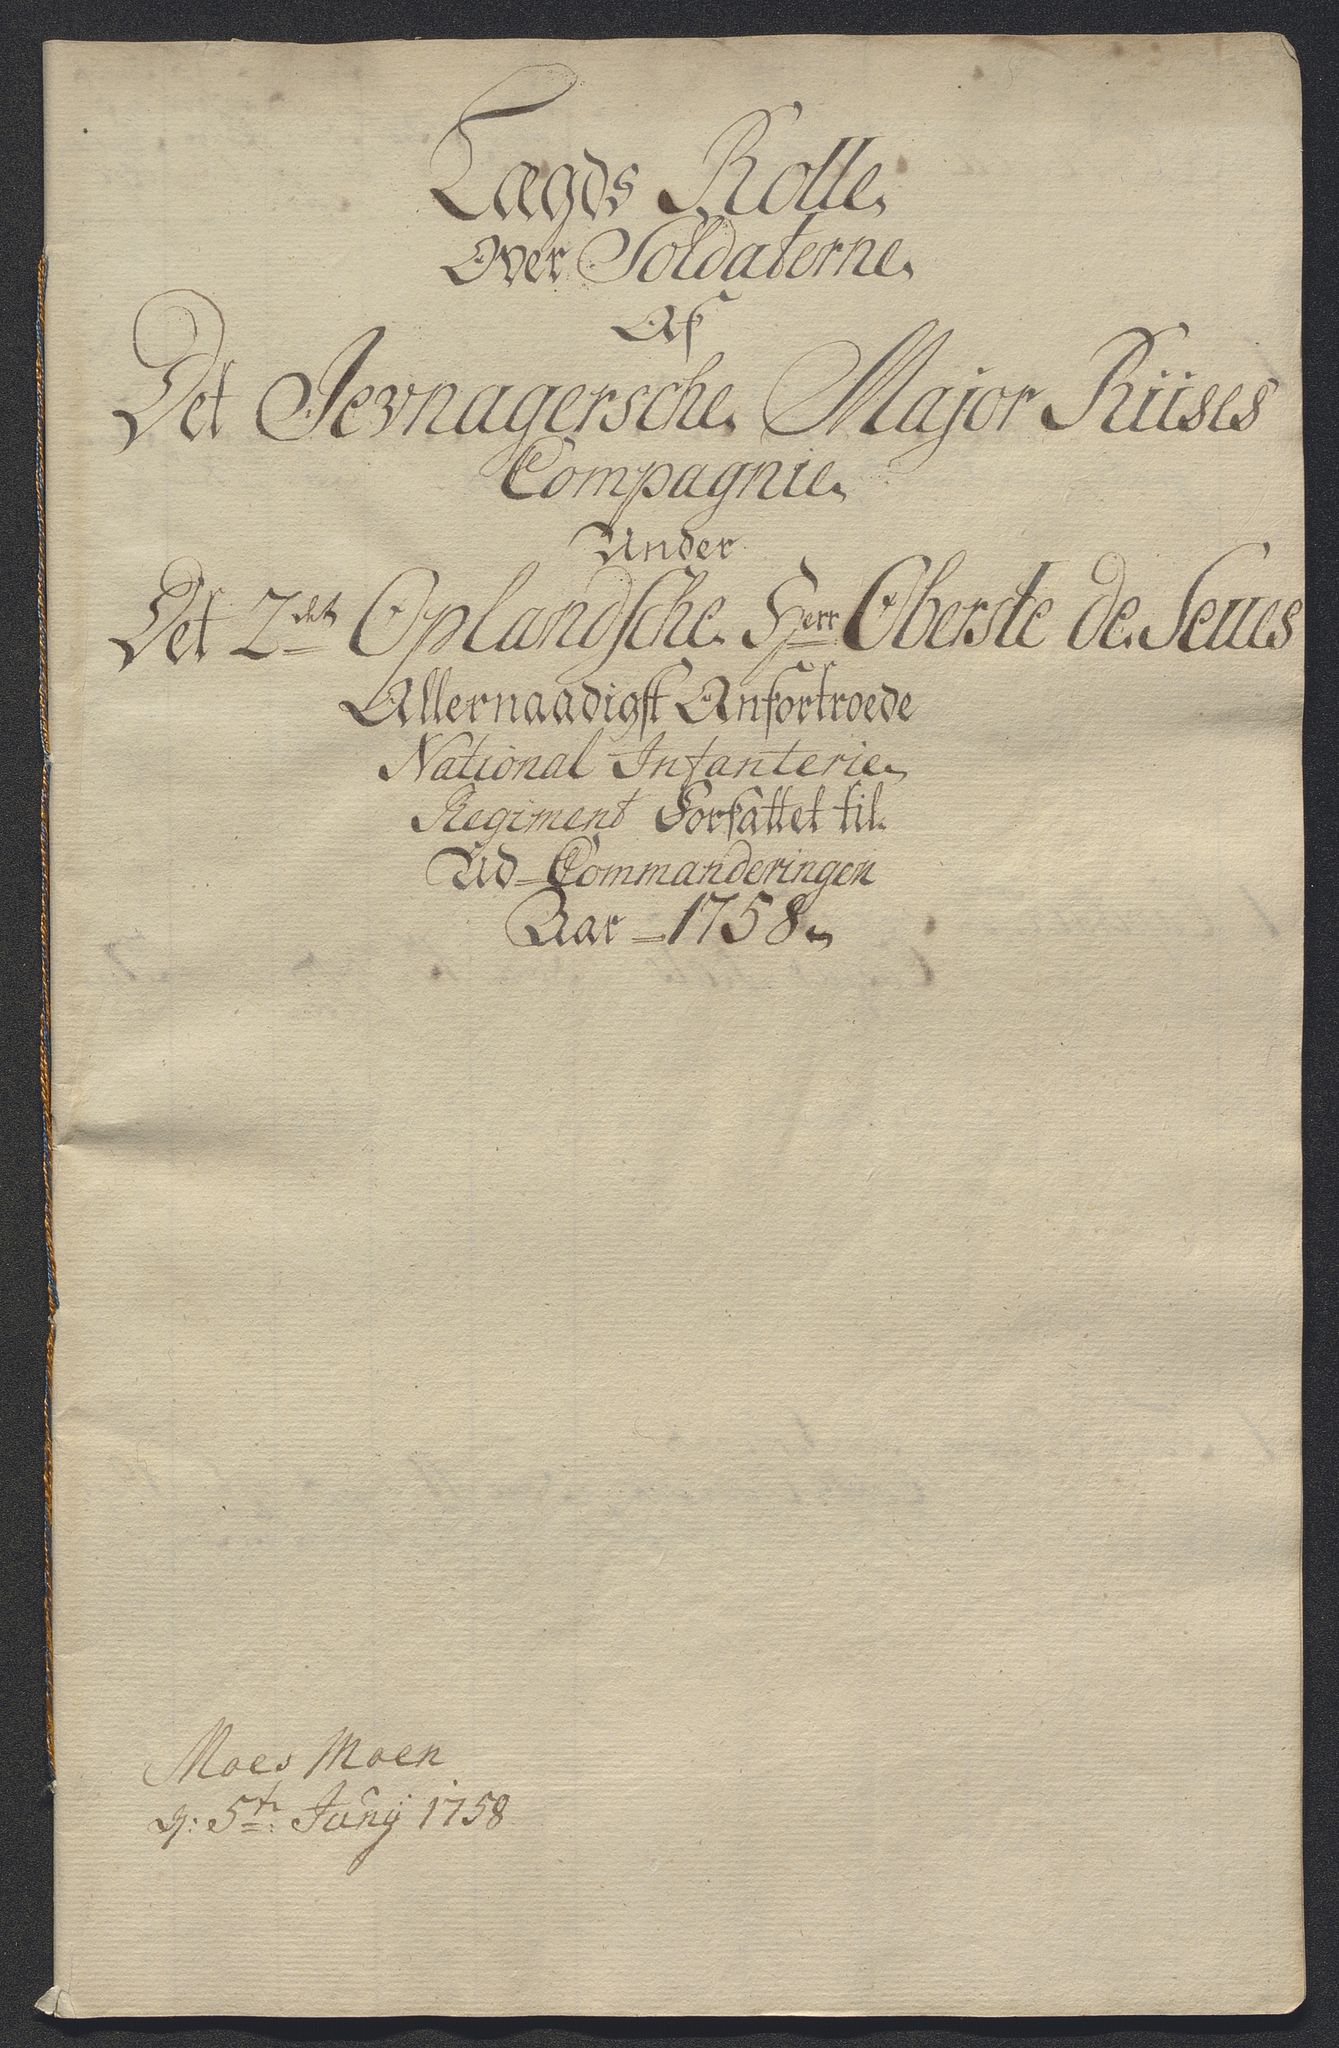 Lægds Rolle
Over Soldaterne
Af
Det Jevnagersche Major Riises
Compagnie
Under
Det 2det Oplandsche Herr Oberste de Seues
Allernaadigst Anfortroede
National Infanterie
Regiment Forfattet til
Ud-Commanderingen
Aar 1758
Moes Moen
d: 5te Junÿ 1758